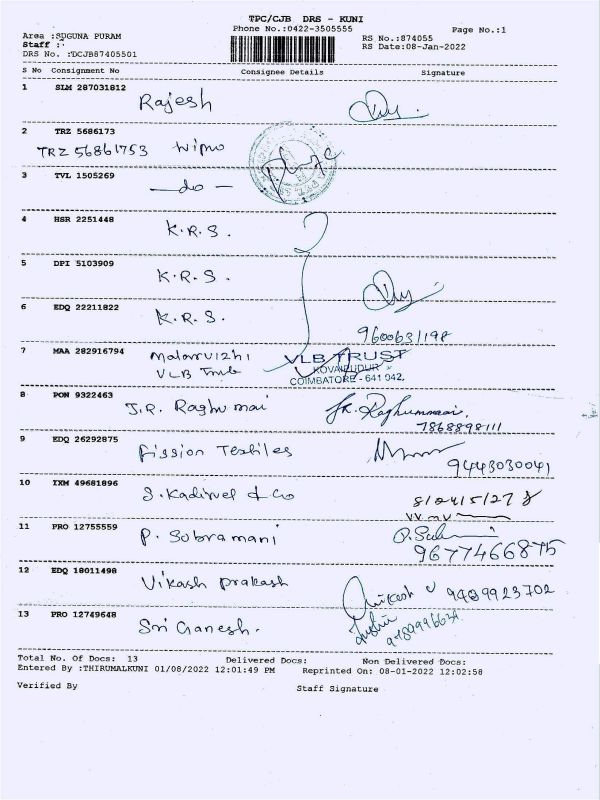 TPC/CJB DRS - KUNI
Phone No.:0422-3505555
Page No.:1
Area :SUGUNA PURAM
RS No.:874055
Staff :
RS Date:08-Jan-2022
DRS No. :DCJB87405501
S No Consignment No Consignee Details Signature
1 SLM 287031812
Rajesh
2 TRZ 5686173
TRZ 56861753 Wipro
3 TVL 1505269
—do—
4 HSR 2251448
K.R.S.
5 DPI 5103909
K.R.S.
6 EDQ 22211822
K.R.S.
9600631198
7 MAA 282916794 Malarvizhi
VLB TRUST
VLB Trust
KOVAIPUDUR
COIMBATORE - 641 042.
8 PON 9322463
J.R. Raghu mai
7868898111
9 EDQ 26292875
Fission Textiles
9443030041
10 IXM 49681896
S. Kadirvel & Co
11 PRO 12755559
P. Subramani
9677466875
12 EDQ 18011498
Vikash prakash
9489923702
13 PRO 12749648
Sri Ganesh.
Total No. Of Docs: 13 Delivered Docs: Non Delivered Docs:
Entered By :THIRUMALKUNI 01/08/2022 12:01:49 PM Reprinted On: 08-01-2022 12:02:58
Verified By Staff Signature